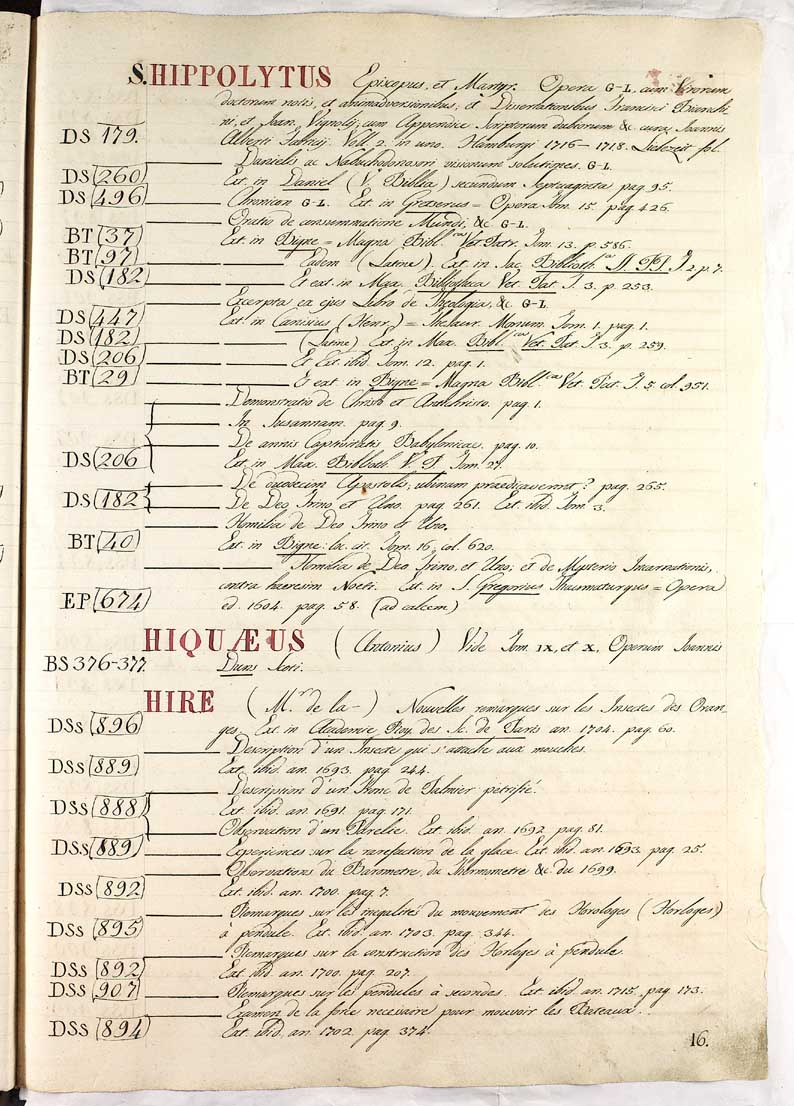 S. HIPPOLYTUS Episcopus, et Martyr. Opera G-L. cum Virorum
doctorum notis, et animadversionibus; et Dissertationibus Francisci Bianchi-
ni, et Joan. Vignolij; cum Appendice Scriptorum dubiorum &c cura Joannis
DS 179. Alberti Fabricij. Voll. 2. in uno. Hamburgi 1716-1718. fol.
Danielis ac Nabuchodonosori visionum solutiones. G-L.
DS (260) Ext. in Daniel (V. Biblia) secundum Septuaginta pag. 95.
DS (496) Chronicon G-L. Ext. in Gretserus = Opera Tom. 15. pag. 426.
Oratio de consummatione Mundi, &c. G-L.
BT (37) Ext. in Bigne = Magna Bibl.ca Vet. Patr. Tom. 13. p. 586.
BT (97) Eadem (Latine). Ext. in Sac. Biblioth.ca SS. PP. T. 2. p. 7.
DS (182) Et ext. in Max. Bibliotheca Vet. Pat. T. 3. p. 253.
Excerpta ex ejus Libro de Theologia, &c. G-L.
DS (447) Ext. in Canisius (Henr.) = Thesaur. Monum. Tom. 1. pag. 1.
DS (182) (Latine) Ext. in Max. Bibl.ca Vet. Pat. T. 3. p. 259.
DS (206) Et Ext. ibid. Tom. 12. pag. 1.
BT (29) Et ext. in Bigne = Magna Bibl.ca Vet. Pat. T. 5. col. 951.
Demonstratio de Christo et Antichristo. pag. 1.
In Susannam. pag. 9.
De annis Captivitatis Babylonicae. pag. 10.
DS (206 Ext. in Max. Biblioth. V. P. Tom. 27.
De duodecim Apostolis, ubinam praedicaverint? pag. 265.
DS (182 De Deo Trino, et Uno. pag. 261. Ext. ibid. Tom. 3.
Homilia de Deo Trino & Uno.
BT (40) Ext. in Bigne: loc. cit. Tom. 16. col. 620.
Homilia de Deo Trino, et Uno; et de Mysterio Incarnationis,
contra haeresim Noeti. Ext. in S. Gregorius Thaumaturgus = Opera
EP (674) ed. 1604. pag. 58. (ad calcem)
HIQUÆUS (Antonius) Vide Tom. IX, et X, Operum Joannis
BS 376-377. Duns Scoti.
HIRE (M.r de la-) Nouvelles remarques sur les Insectes des Oran-
DSs (896) ges. Ext. in Academie Roy. des Sc. de Paris an. 1704. pag. 60.
Description d'un Insecte qui s'attache aux mouches.
DSs (889) Ext. ibid. an. 1693. pag. 244.
Description d'un Tronc de Palmier petrifié.
DSs (888) Ext. ibid. an. 1691. pag. 171.
Observation d'un Parelie. Ext. ibid. an. 1692. pag. 81.
DSs (889) Experiences sur la rarefaction de la glace. Ext. ibid. an. 1693. pag. 25.
Observations du Barometre du Thermometre &c du 1699.
DSs (892) Ext. ibid. an. 1700. pag. 7.
Remarques sur les inegalités du mouvement des Horologes (Horloges)
DSs (895) à pendule. Ext. ibid. an. 1703. pag. 344.
Remarques sur la construction des Horloges à pendule.
DSs (892) Ext. ibid. an. 1700. pag. 207.
DSs (907) Remarques sur les pendules à secondes. Ext. ibid. an. 1715. pag. 173.
Examen de la force necessaire pour mouvoir les Bateaux..
DSs (894) Ext. ibid. an. 1702. pag. 374.
16.